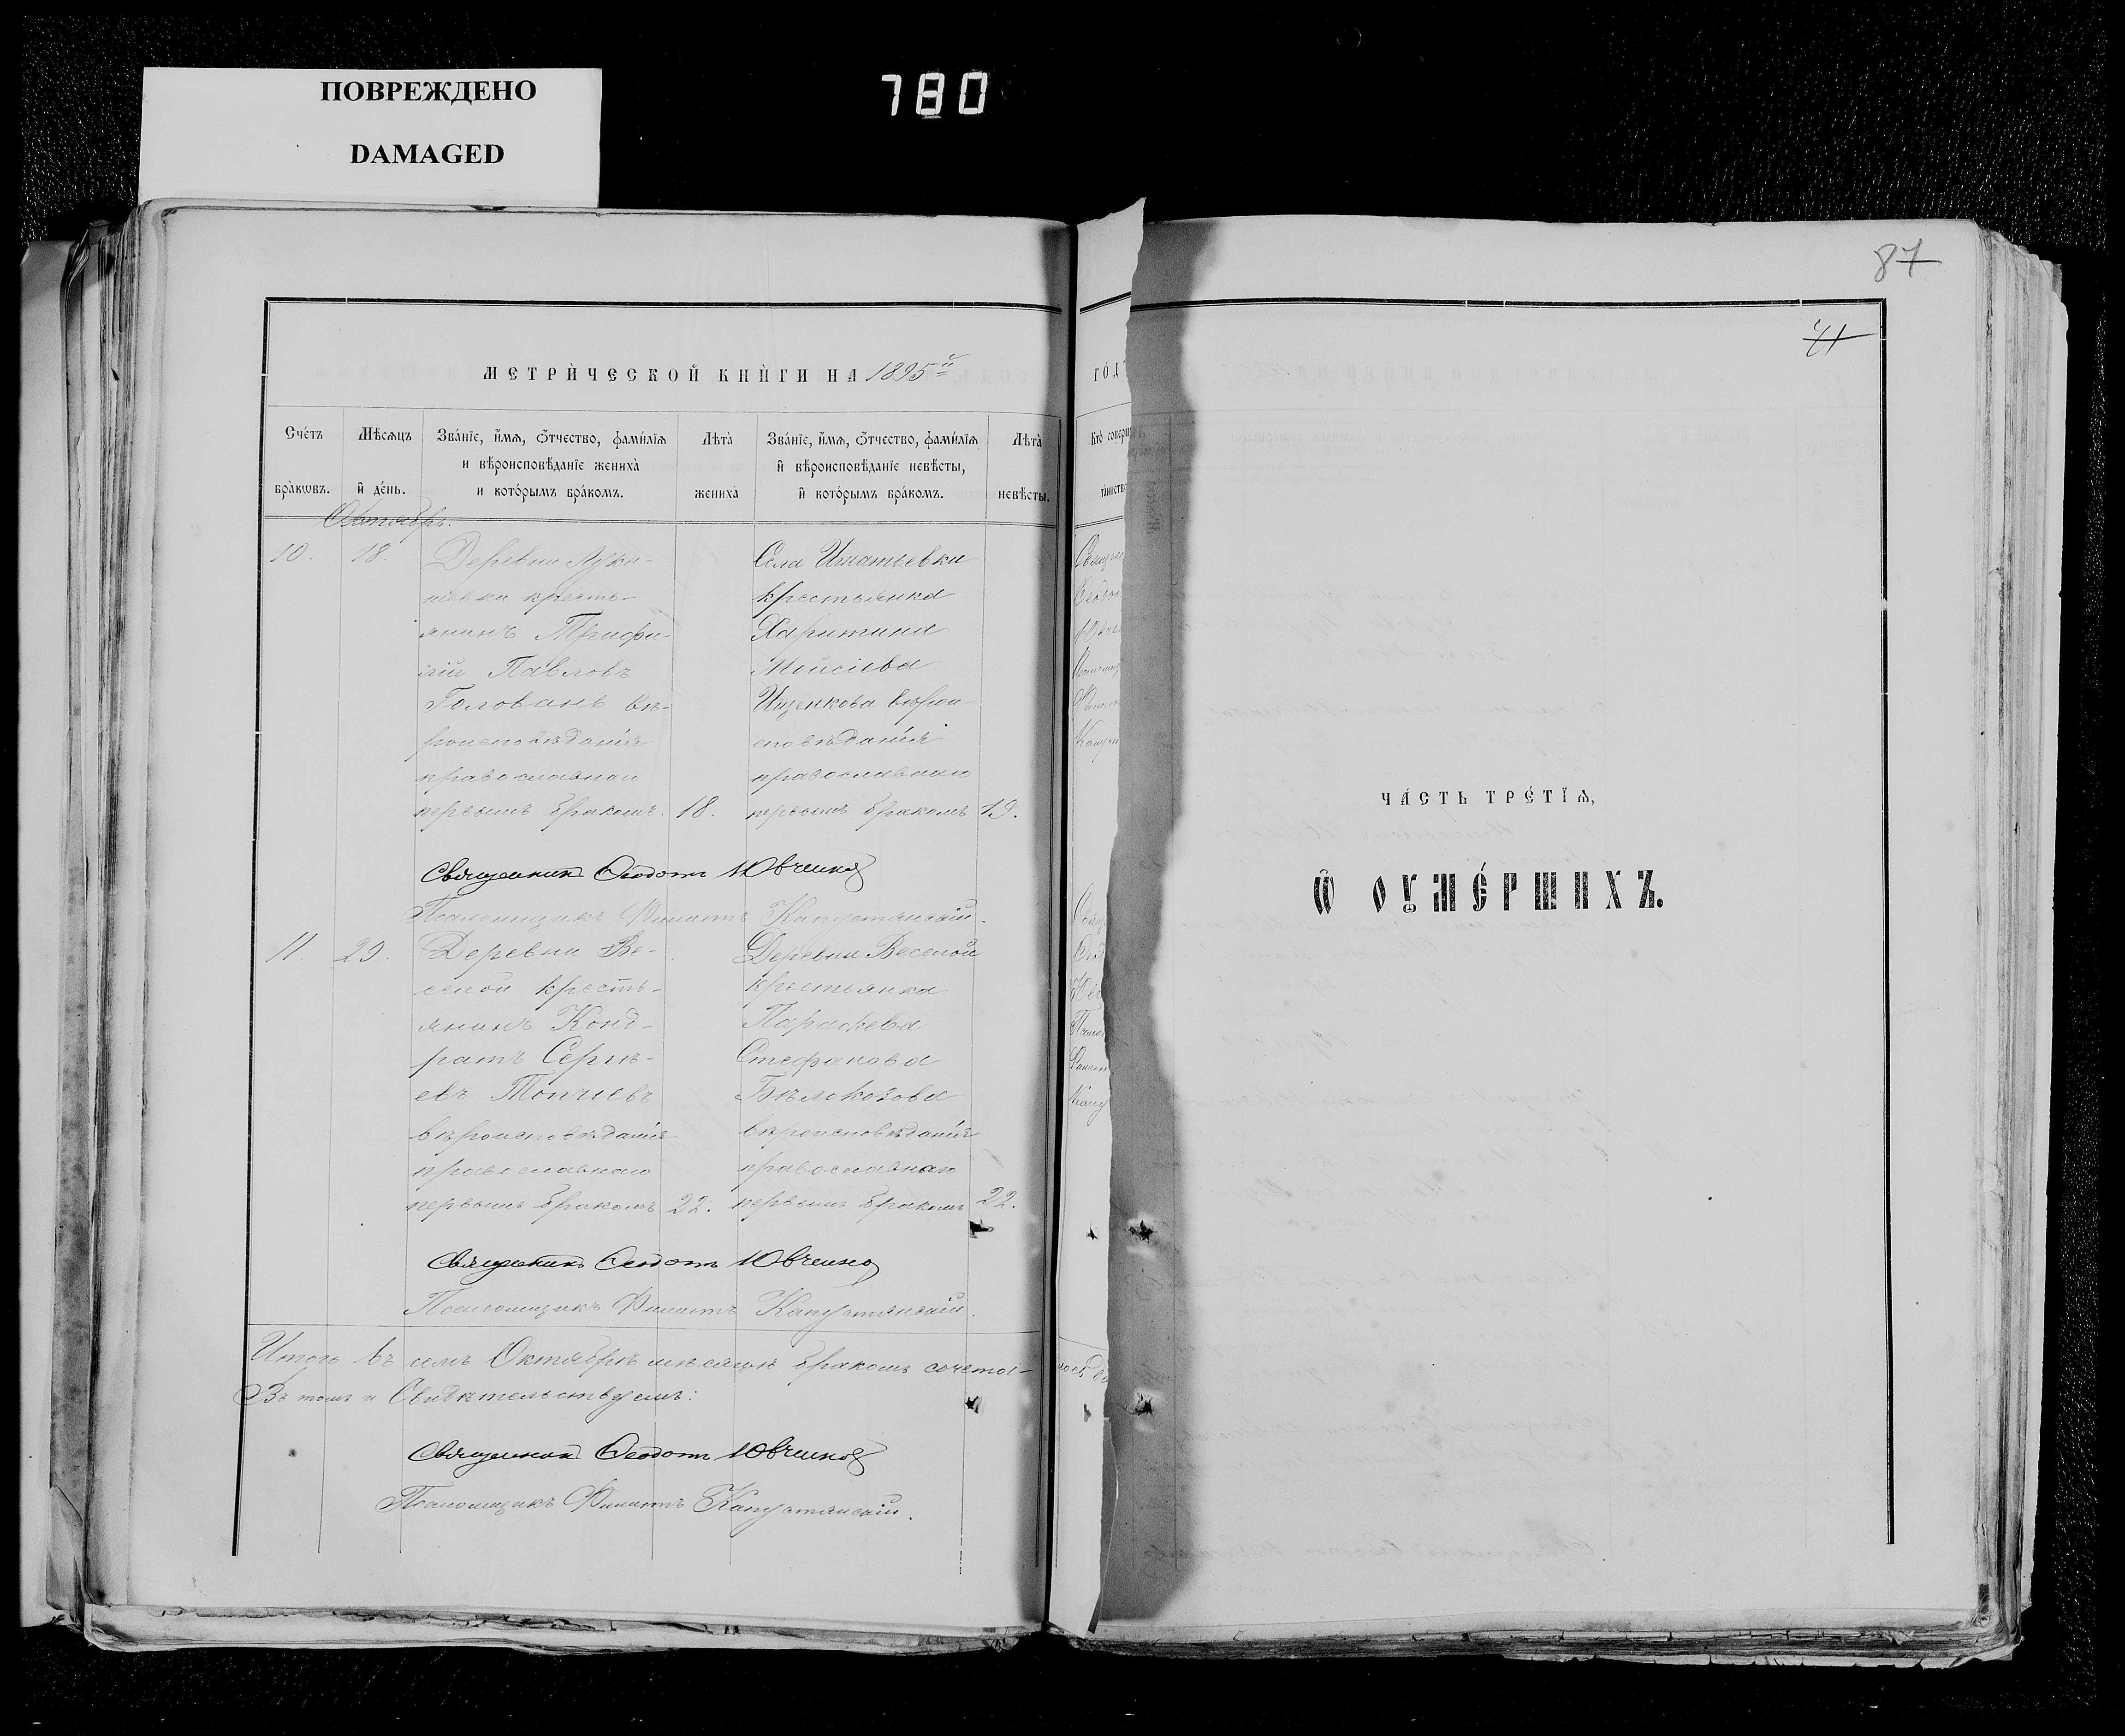 ПОВРЕЖДЕНО
DAMAGED
780
87
41
МЕТРИ́ЧЕСКОЙ КНИ́ГИ НА 1895й
Сче́тъ бра́кωвъ.
Мѣ́сѧцъ и҆ де́нь.
Зва́нїе, и҆́мѧ, ѻ҆́тчество, фами́лїѧ и вѣроисповѣ́данїе жениха̀ и кото́рымъ бра́комъ.
Лѣта̀ жениха̀
Зва́нїе, и҆́мѧ, ѻ҆́тчество, фами́лїѧ и҆ вѣроисповѣ́данїе невѣ́сты, и҆ кото́рымъ бра́комъ.
Лѣта̀ невѣ́сты.
Октябрь.
10.
18.
Деревни Лука-
невки кресть-
янинъ Трифи-
лій Павловъ
Голованъ вѣ-
роисповѣданія
православнаго
первымъ бракомъ.
18.
Села Игнатьевки
крестьянка
Харитина
Моисіева
Ищенкова вѣрои-
сповѣданія
православнаго
первымъ бракомъ
19.
Священникъ Ѳеодотъ Ювченко
Псаломщикъ Филиппъ Капустянскій.
11.
29.
Деревни Ве-
селой кресть-
янинъ Конд-
ратъ Сергѣ-
евъ Топчіевъ
вѣроисповѣданія
православнаго
первымъ бракомъ
22.
Деревни Веселой
крестьянка
Параскева
Стефанова
Бѣлоконова
вѣроисповѣданія
православнаго
первымъ бракомъ
22.
Священникъ Ѳеодотъ Ювченко
Псаломщикъ Филиппъ Капустянскій.
Итого въ семъ Октябрѣ мѣсяцѣ бракомъ сочета-
Въ томъ и Свидѣтельствуемъ:
Священникъ Ѳеодотъ Ювченко
Псаломщикъ Филиппъ Капустянскій.
ГО́ДЪ
Кто̀ соверш
та́инство
ЧА́СТЬ ТРЕ́ТЇѦ,
Ѽ ОУ҆МЕ́РШИХЪ.